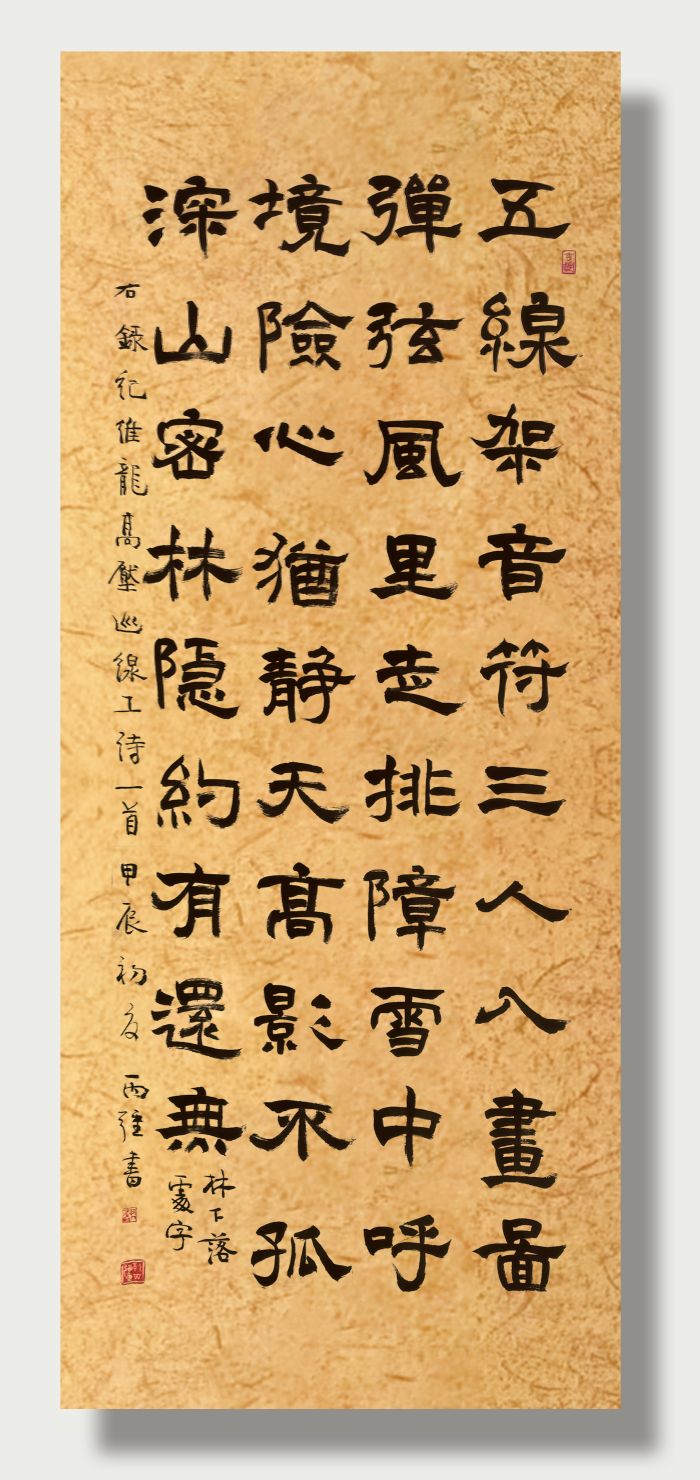 五線架音符三人入畫啚
彈弦風里走排障雪中呼
境險心猶靜天高影不孤
深山密林隱約有還無
林下落
處字
右録纪維龍高壓巡線工诗一首甲辰初夏丙强書